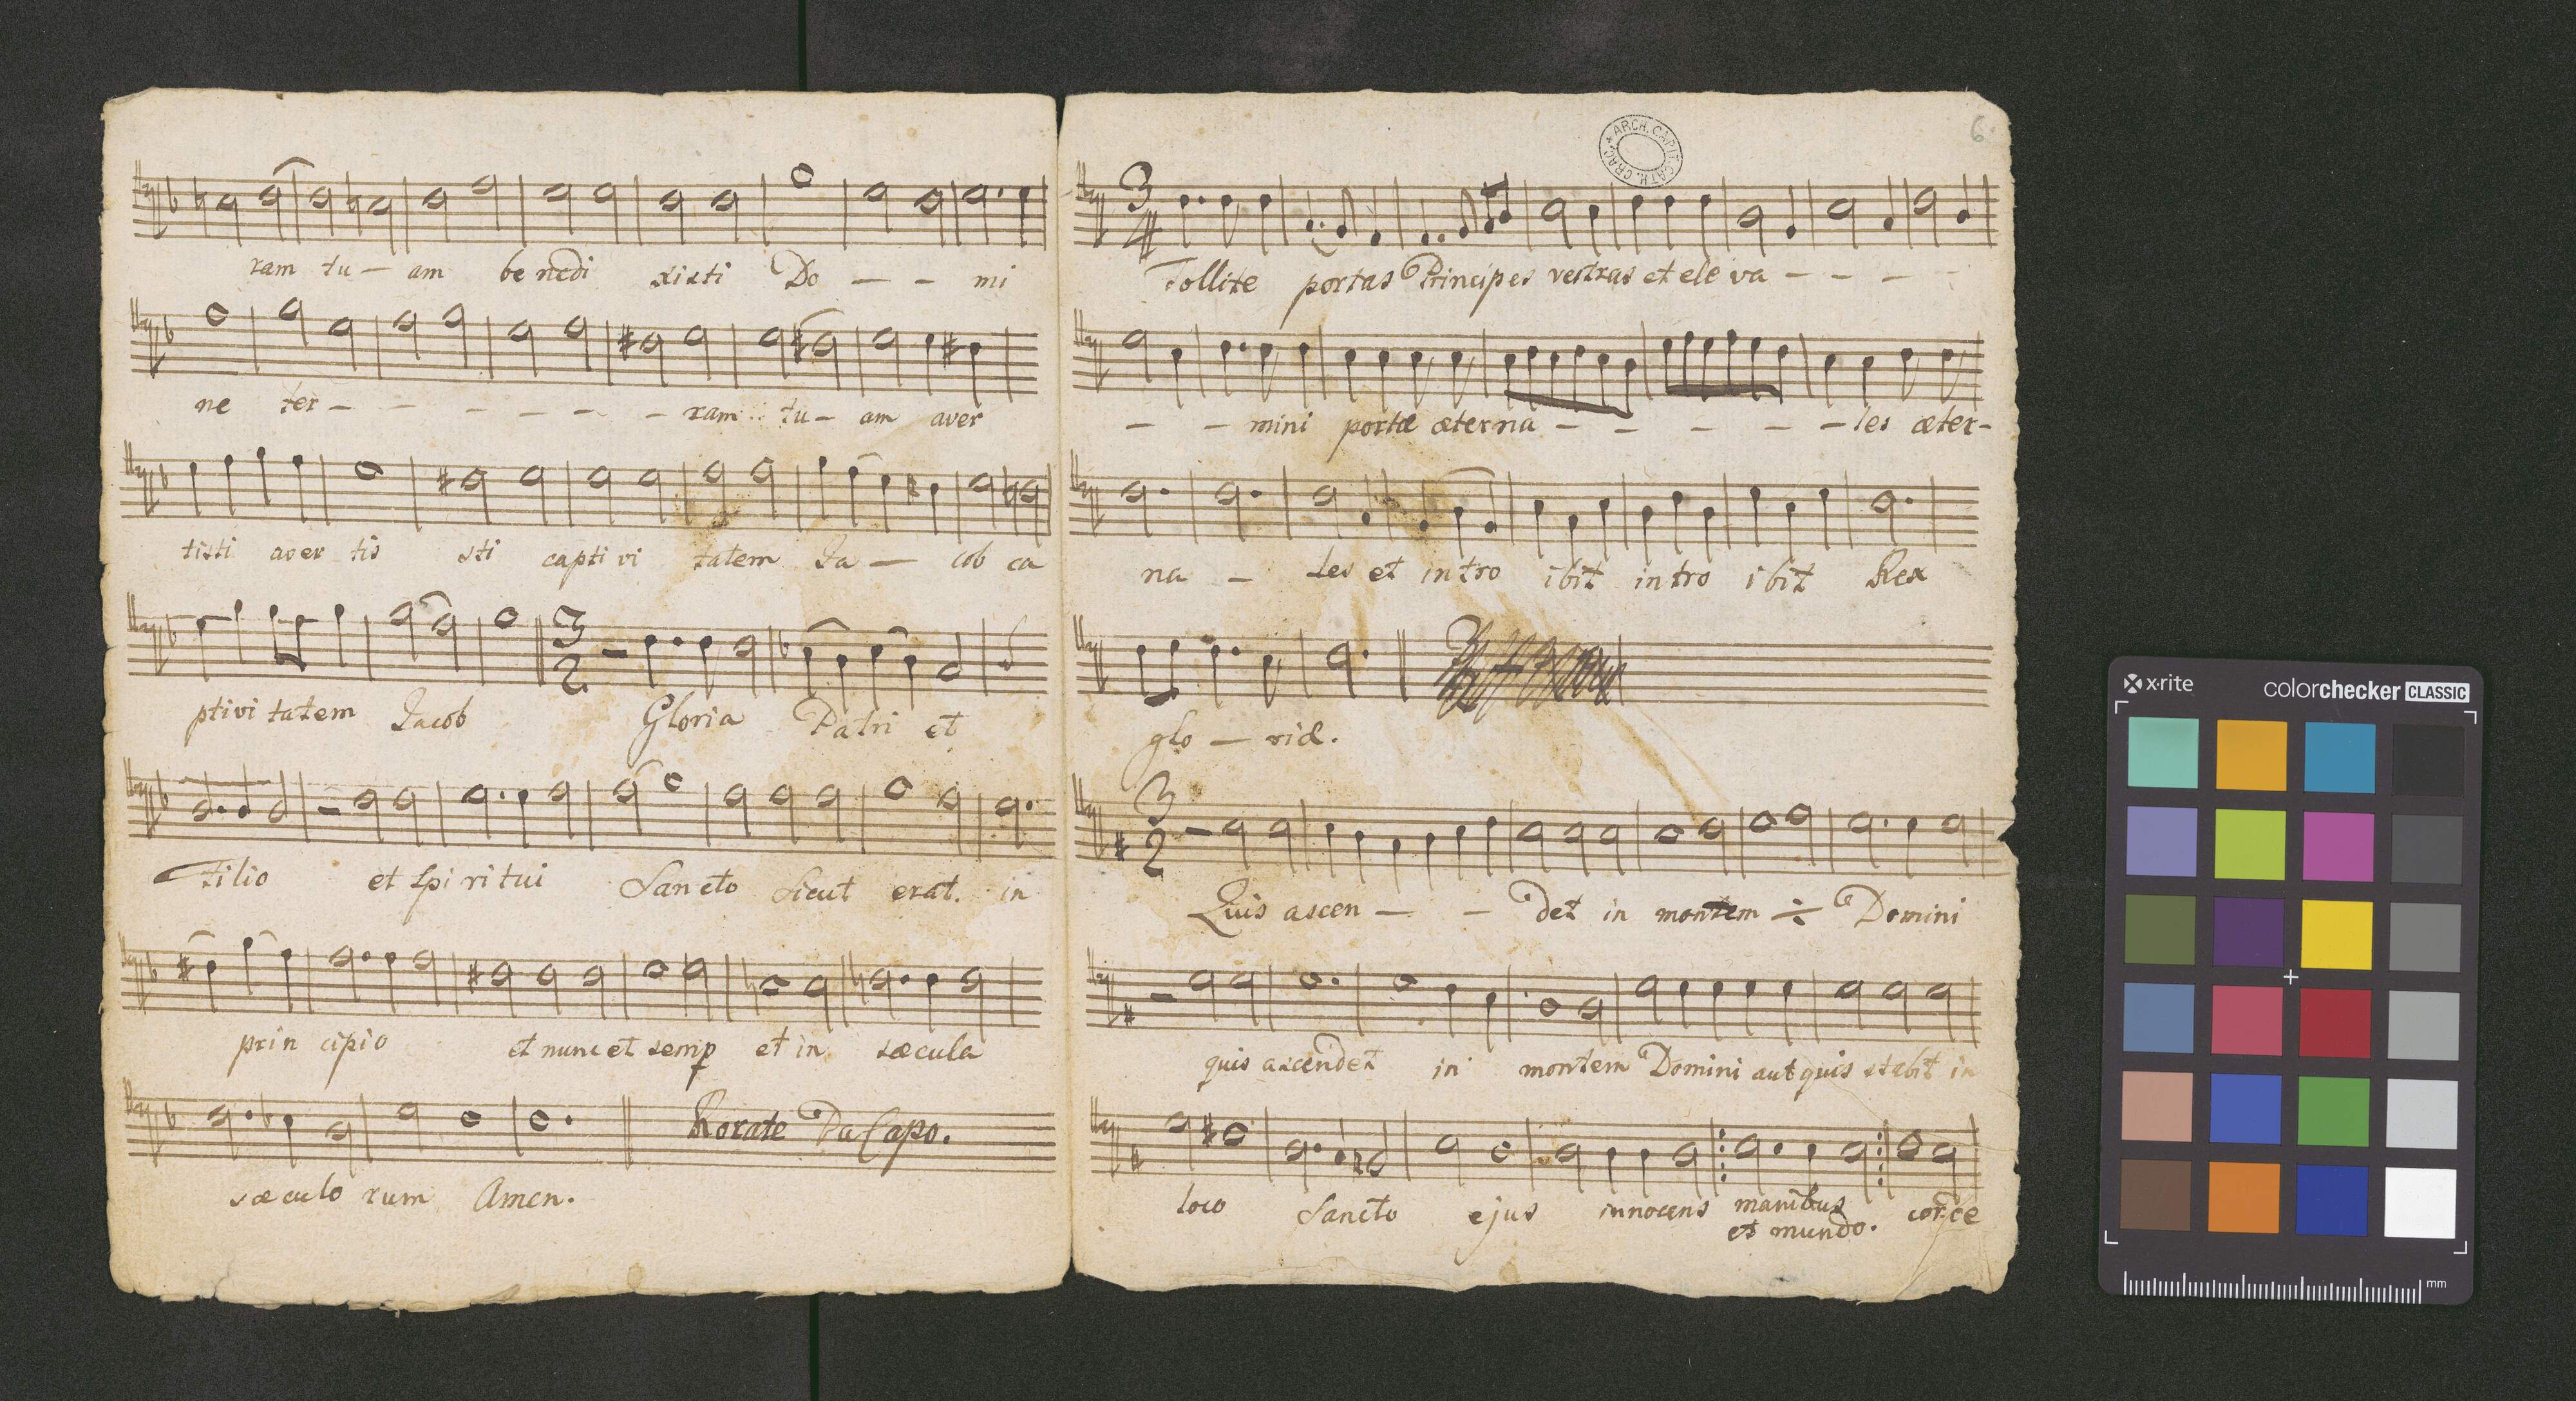 ram tu - am be nedi xisti Do - - mi
ne ter - - - - - - ram tu - am aver
tisti aver tis sti capti vi tatem Ja - cob ca
ptivi tatem Jacob Gloria Patri et
filio et spi ri tui Sancto Sicut erat. in
prin cipio et nunc et semp et in sæcula
sæ culo rum Amen. Rorate Da Capo.
6.
ARCH. CAPIT. CATH. CRAC.
3
4
Tollite portas Principes vestras et ele va - - - -
- - mini portæ æterna - - - - - les æter-
na - les et intro ibit intro ibit Rex
glo - riæ.
3
2
Quis ascen - - det in montem ÷ Domini
quis ascendet in montem Domini aut quis stabit in
loco Sancto ejus innocens manibus corde
et mundo.
x-rite
colorchecker CLASSIC
mm